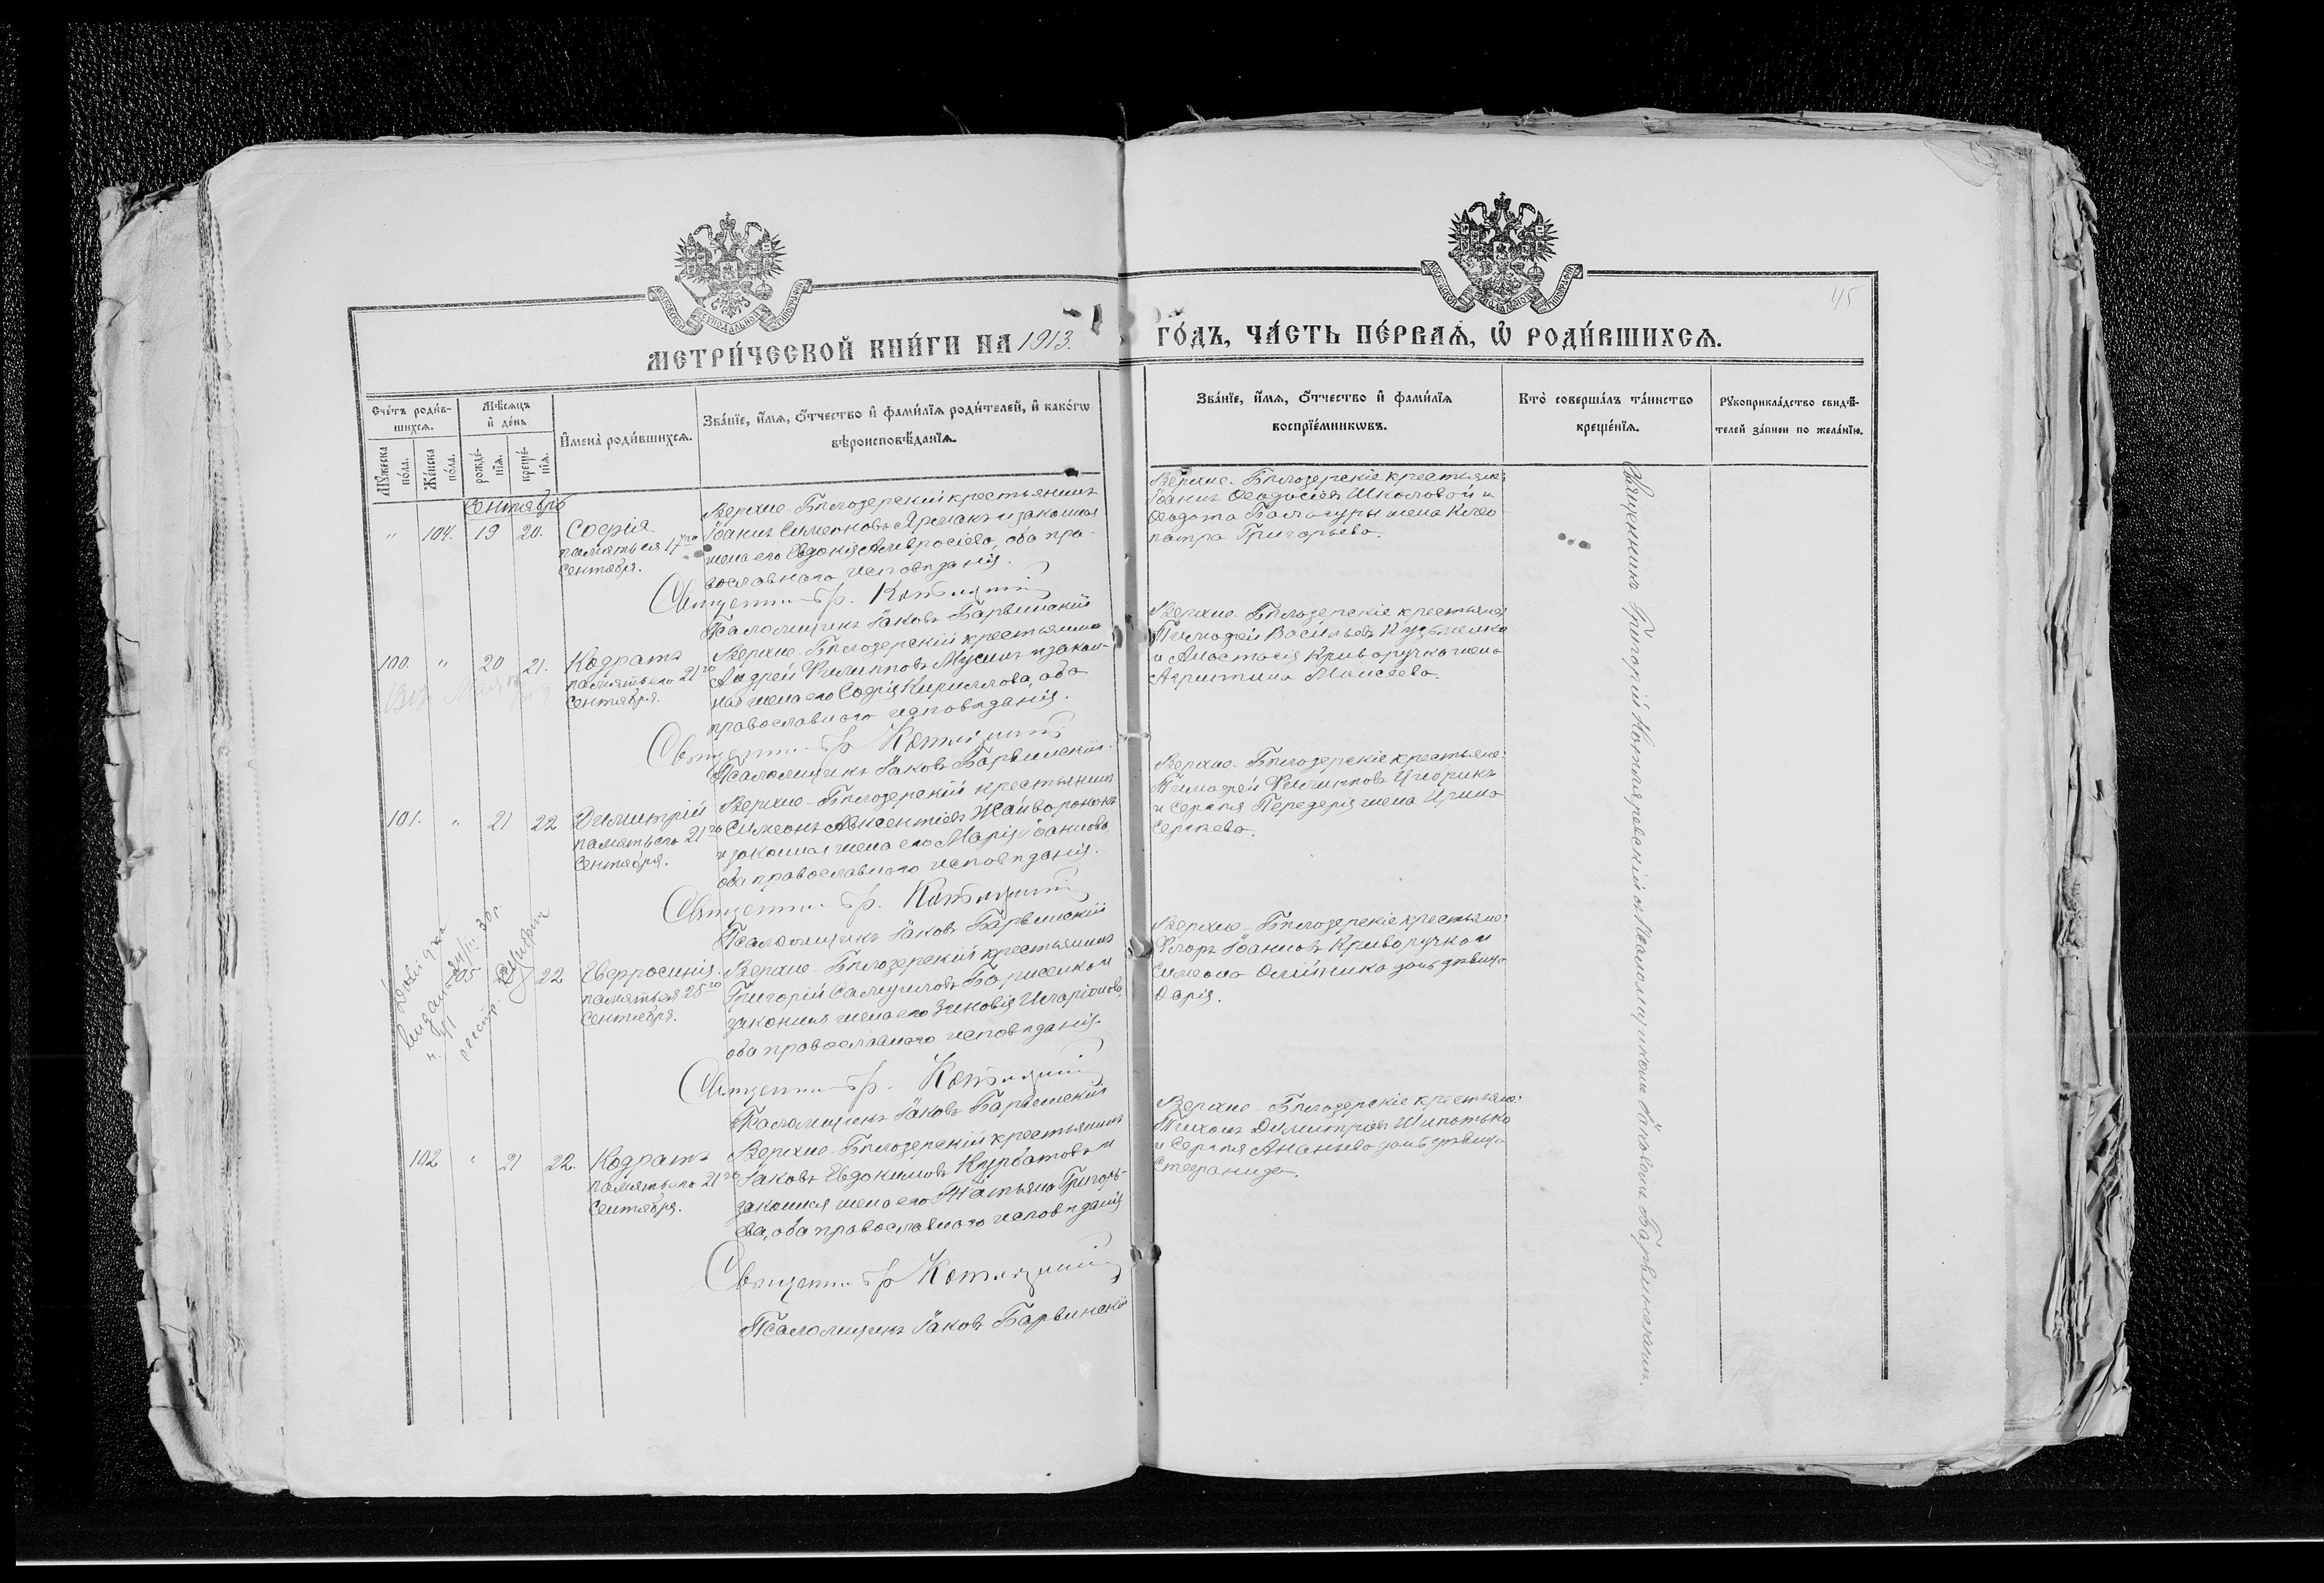 45
МЕТРИ́ЧЕСКОЙ КНИ́ГИ НА 1913. ГО́ДЪ, ЧА́СТЬ ПЕ́РВАѦ, Ѡ РОДИ́ВШИХСѦ.
Сче́тъ роди́в-
шихсѧ.
Мѣ́сѧцъ
и де́нь
Мꙋ́жеска
по́ла.
Же́нска
по́ла.
рожде́-
нїѧ.
креще́-
нїѧ.
Имена̀ роди́вшихсѧ.
Зва́нїе, и́мѧ, о́тчество и фами́лїѧ роди́телей, и како́гѡ
вѣроисповѣ́данїѧ.
Зва́нїе, и́мѧ, о́тчество и фами́лїѧ
воспрїе́мникѡвъ.
Кто̀ соверша́лъ та́инство
креще́нїѧ.
Рꙋкоприкла́дство свидѣ́-
телей за́писи по жела́нїю.
Сентябрь
" 104. 19 20. Софія
память ея 17го
Сентября.
Верхне-Бѣлозерскій крестьянинъ
Іоаннъ Симеоновъ Ярмакъ и законная
жена его Евдокія Амвросіева, оба пра-
вославнаго исповѣданія.
Священникъ Гр. Котляревскій
Псаломщикъ Іаковъ Барвинскій
Верхне-Бѣлозерскіе крестьяне:
Іоаннъ Феодосіевъ Школовой и
Феодота Балагуры жена Клео
патра Григорьева.
100. " 20 21. Кодратъ
память его 21го
Сентября.
Верхне-Бѣлозерскій крестьянинъ
Андрей Филипповъ Мусинъ и закон-
ная жена его Софія Кириллова, оба
православнаго исповѣданія.
Священникъ Гр. Котляревскій
Псаломщикъ Іаковъ Барвинскій.
Верхне-Бѣлозерскіе крестьяне:
Тимофей Васильевъ Кузьменко
и Анастасія Криворучка жена
Агриппина Моисеева.
101. " 21 22 Димитрій
память его 21го
Сентября.
Верхне-Бѣлозерскій крестьянинъ
Симеонъ Авксентіевъ Жайворонокъ
и законная жена его Марія Іоаннова,
оба православнаго исповѣданія.
Священникъ Гр. Котляревскій
Псаломщикъ Іаковъ Барвинскій
Верхне-Бѣлозерскіе крестьяне:
Тимофей Филипповъ
и Сергѣя Передерія жена Ирина
Сергѣева.
105 22 Евфросинія.
память ея 25го
Сентября.
Верхне-Бѣлозерскій крестьянинъ
Григорій Самуиловъ Борисенко и
законная жена его Зиновія Иларіонова,
оба православнаго исповѣданія.
Священникъ Гр. Котляревскій
Псаломщикъ Іаковъ Барвинскій
Верхне-Бѣлозерскіе крестьяне:
Флоръ Іоанновъ Криворучко и
Симеона Олійника дочь дѣвица
Дарія.
102 " 21 22. Кодратъ
память его 21го
Сентября.
Верхне-Бѣлозерскій крестьянинъ
Іаковъ Евдокимовъ Курбатовъ и
законная жена его Татьяна Григорь-
ева, оба православнаго исповѣданія
Священникъ Гр Котляревскій
Псаломщикъ Іаковъ Барвинскій
Верхне-Бѣлозерскіе крестьяне:
Тихонъ Димитріевъ Шипотько
и Сергѣя Ананьева дочь дѣвица
Стефанида.
Священникъ Григорій Котляревскій съ Псаломщикомъ Іаковомъ Барвинскимъ.